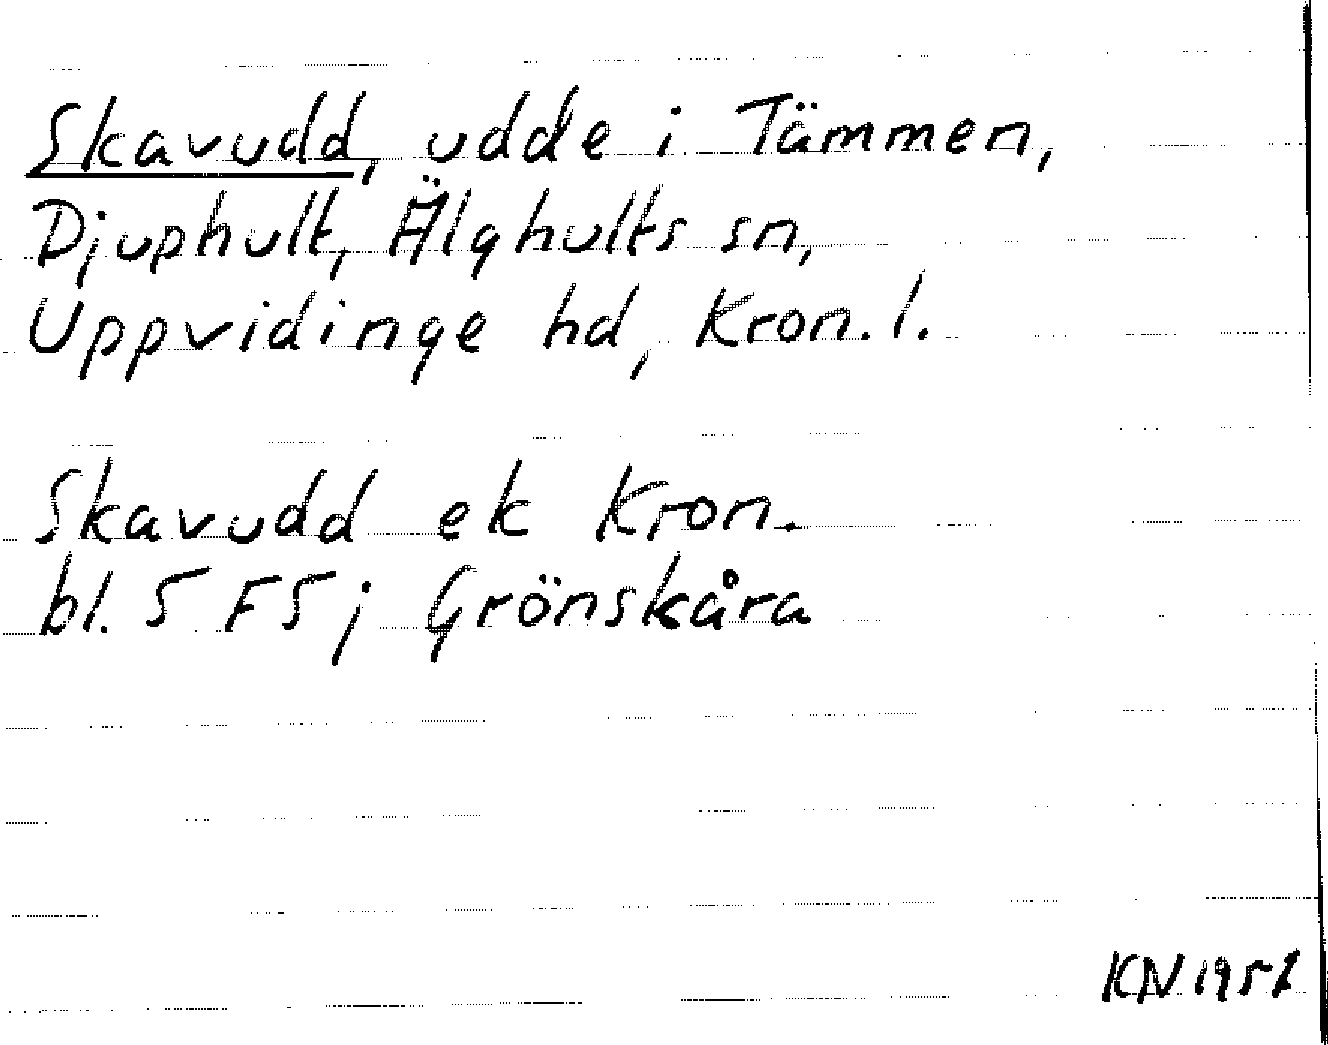 Skavudd, udde i Tämmen,
Djuphult, Älghults sn,
Uppvidinge hd, Kron. l.
Skavudd ek Kron.
bl. 5 F5j Grönskåra
KN 1951